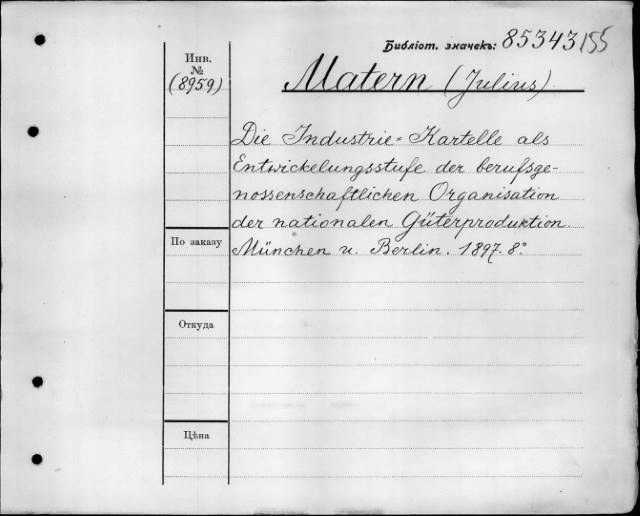 Библіот. значекъ: 85343/155
Инв.
№
(8959)
Matern (Julius)
Die Industrie=Kartelle als
Entwickelungsstufe der berufsge-
nossenschaftlichen Organisation
der nationalen Güterproduktion.
München u. Berlin. 1897. 8°
По заказу
Откуда
Цѣна